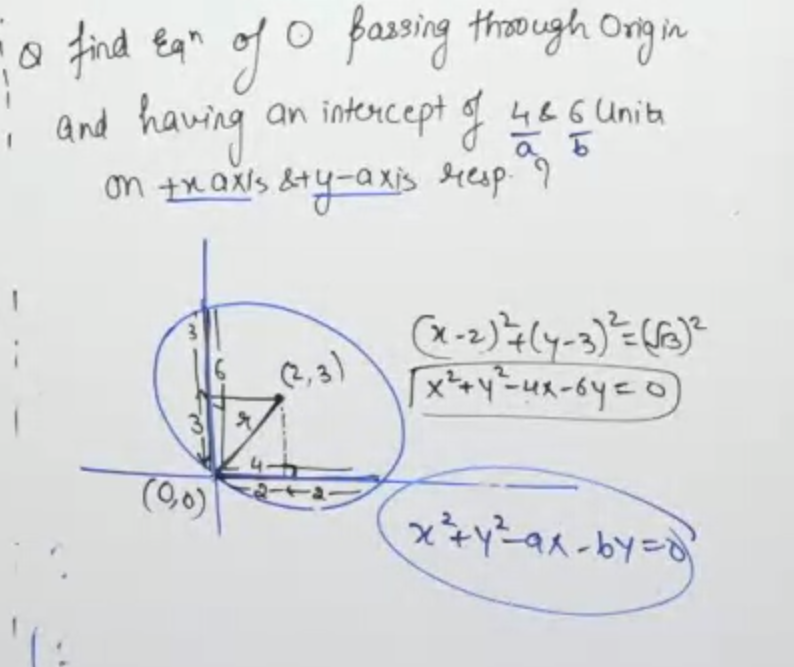 Q find Eqⁿ of O passing through Origin
and having an intercept of 4 & 6 Units
a b
on +x axis & +y-axis resp. ?
3
6
(2,3)
3
r
4
2 2
(0,0)
(x-2)²+(y-3)²=(√13)²
x²+y²-4x-6y=0
x²+y²-ax-by=0